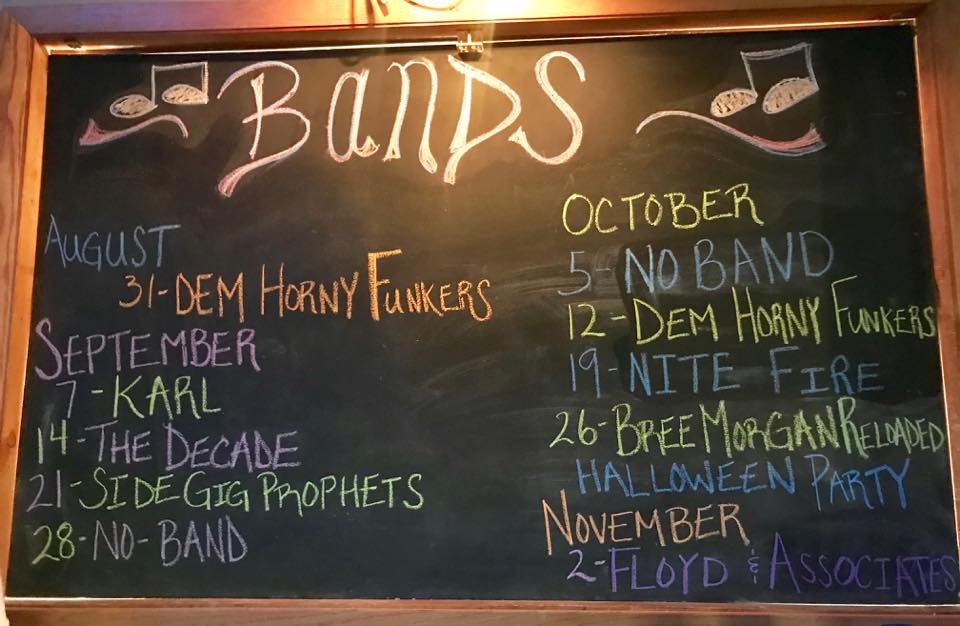 BANDS
AUGUST
31-DEM HORNY FUNKERS
SEPTEMBER
7-KARL
14-THE DECADE
21-SIDE GIG PROPHETS
28-NO-BAND
OCTOBER
5-NO BAND
12-DEM HORNY FUNKERS
19-NITE FIRE
26-BREE MORGAN RELOADED
HALLOWEEN PARTY
NOVEMBER
2-FLOYD & ASSOCIATES